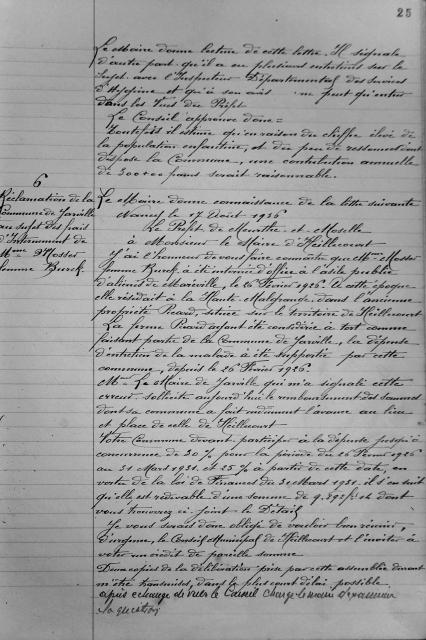 25
Le Maire donne lecture de cette lettre. Il signale
d'autre part qu'il a eu plusieurs entretiens sur le
sujet avec l'Inspecteur Départemental des Services
d'Hygiène et qu'à son avis ne peut qu'entrer
dans les vues du Préfet
Le Conseil approuve donc =
Toutefois il estime qu'en raison du chiffre élevé de
la population enfantine, et du peu de ressources dont
dispose la Commune, une contribution annuelle
de 300 francs serait raisonnable.
6
Réclamation de la
Commune de Jarville
au sujet des frais
d'Internement de
Mme Mosser
femme Burck.
Le Maire donne connaissance de la lettre suivante
Nancy le 17 Août 1936
Le Préfet de Meurthe-et-Moselle
à Monsieur le Maire d'Heillecourt
J'ai l'honneur de vous faire connaître que Mme Mosser
femme Burck a été internée d'office à l'asile public
d'aliénés de Maréville, le 26 Février 1926. A cette époque
elle résidait à la Haute Malgrange, dans l'ancienne
propriété Picard, située sur le territoire de Heillecourt
La ferme Picard ayant été considérée à tort comme
faisant partie de la Commune de Jarville, la dépense
d'entretien de la malade a été supportée par cette
commune, depuis le 26 Février 1926.
Mr Le Maire de Jarville qui m'a signalé cette
erreur, sollicite aujourd'hui le remboursement des sommes
dont sa commune a fait indûment l'avance au lieu
et place de celle de Heillecourt
Votre Commune devant participer à la dépense jusqu'à
concurrence de 30 % pour la période du 26 Février 1926
au 31 Mars 1931 et 25 % à partir de cette date, en
vertu de la loi de Finances du 31 Mars 1931, il s'en suit
qu'elle est redevable d'une somme de dont
vous trouverez ci-joint le Détail
Je vous serais donc obligé de vouloir bien réunir,
d'urgence, le Conseil Municipal de Heillecourt et l'inviter à
voter un crédit de pareille somme
Deux copies de la délibération prise par cette assemblée devront
m'être transmises, dans le plus court délai possible
après échange de vues le Conseil charge le maire d'examiner
la question